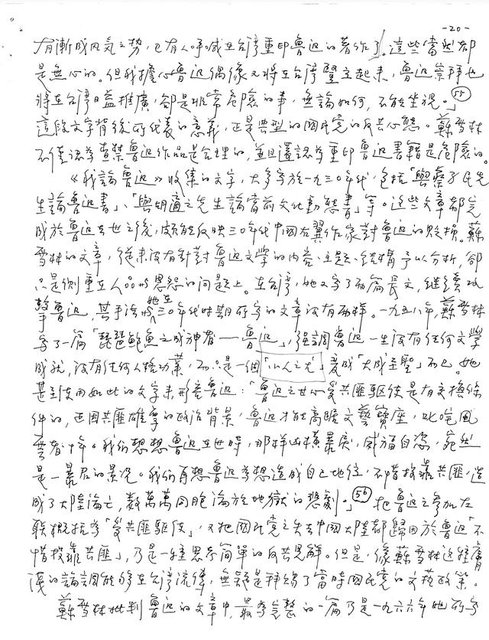 -20-
有漸成風氣之勢，也有人呼喊在台灣重印魯迅的著作了。這些當然都
是無心的。但我擔心魯迅偶像又將在台灣豎立起來，魯迅崇拜也
將在台灣日益推廣，卻是非常危險的事，無論如何，不能坐視。」
這段文字背後所代表的意義，正是典型的國民黨的反共心態。蘇雪林
不僅認為查禁魯迅作品是合理的，並且還認為重印魯迅書籍是危險的。
《我論魯迅》收集的文字，大多寫於一九三〇年代，包括「與蔡孑民先
生論魯迅書」、「與胡適之先生論當前文化動態書」等。這些文章都完
成於魯迅去世之後，頗能反映三〇年代中國右翼作家對魯迅的貶損。蘇
雪林的文章，從來沒有針對魯迅文學的內容、主題、結構予以分析，卻
只是側重在人品的思想的問題上。在台灣，她又寫了兩篇長文，繼續攻
擊魯迅，其手法與她在三〇年代時期所寫的文章沒有兩樣。一九五八年，蘇雪林
寫了一篇「琵琶鮑魚之成神者──魯迅」，強調魯迅一生沒有任何文學
成就，沒有任何人格功業，而只是一個「小人之尤」裝成「大成至聖」而已。她
甚至使用如此的文字來形容魯迅：「魯迅之甘心受共匪驅使是有交換條
件的，也因共匪雄厚的政治背景，魯迅才能高踞文藝寶座，叱咤風
雲者十年。我們想想魯迅在世時，那種凶橫暴戾，威福自恣，宛然
是一暴君的景況。我們再想魯迅為想造成自己地位，不惜投靠共匪，造
成了大陸淪亡，數萬萬同胞淪於地獄的悲劇。」(56)把魯迅之參加左
聯概括為「受共匪驅使」，又把國民黨之失去中國大陸都歸因於魯迅「不
惜投靠共匪」，乃是一種思考簡單的反共見解。但是，像蘇雪林這種膚
淺的論調能夠在台灣流傳，無疑是拜賜了當時國民黨的文藝政策。
蘇雪林批判魯迅的文章中，最為完整的一篇乃是一九六六年她所寫